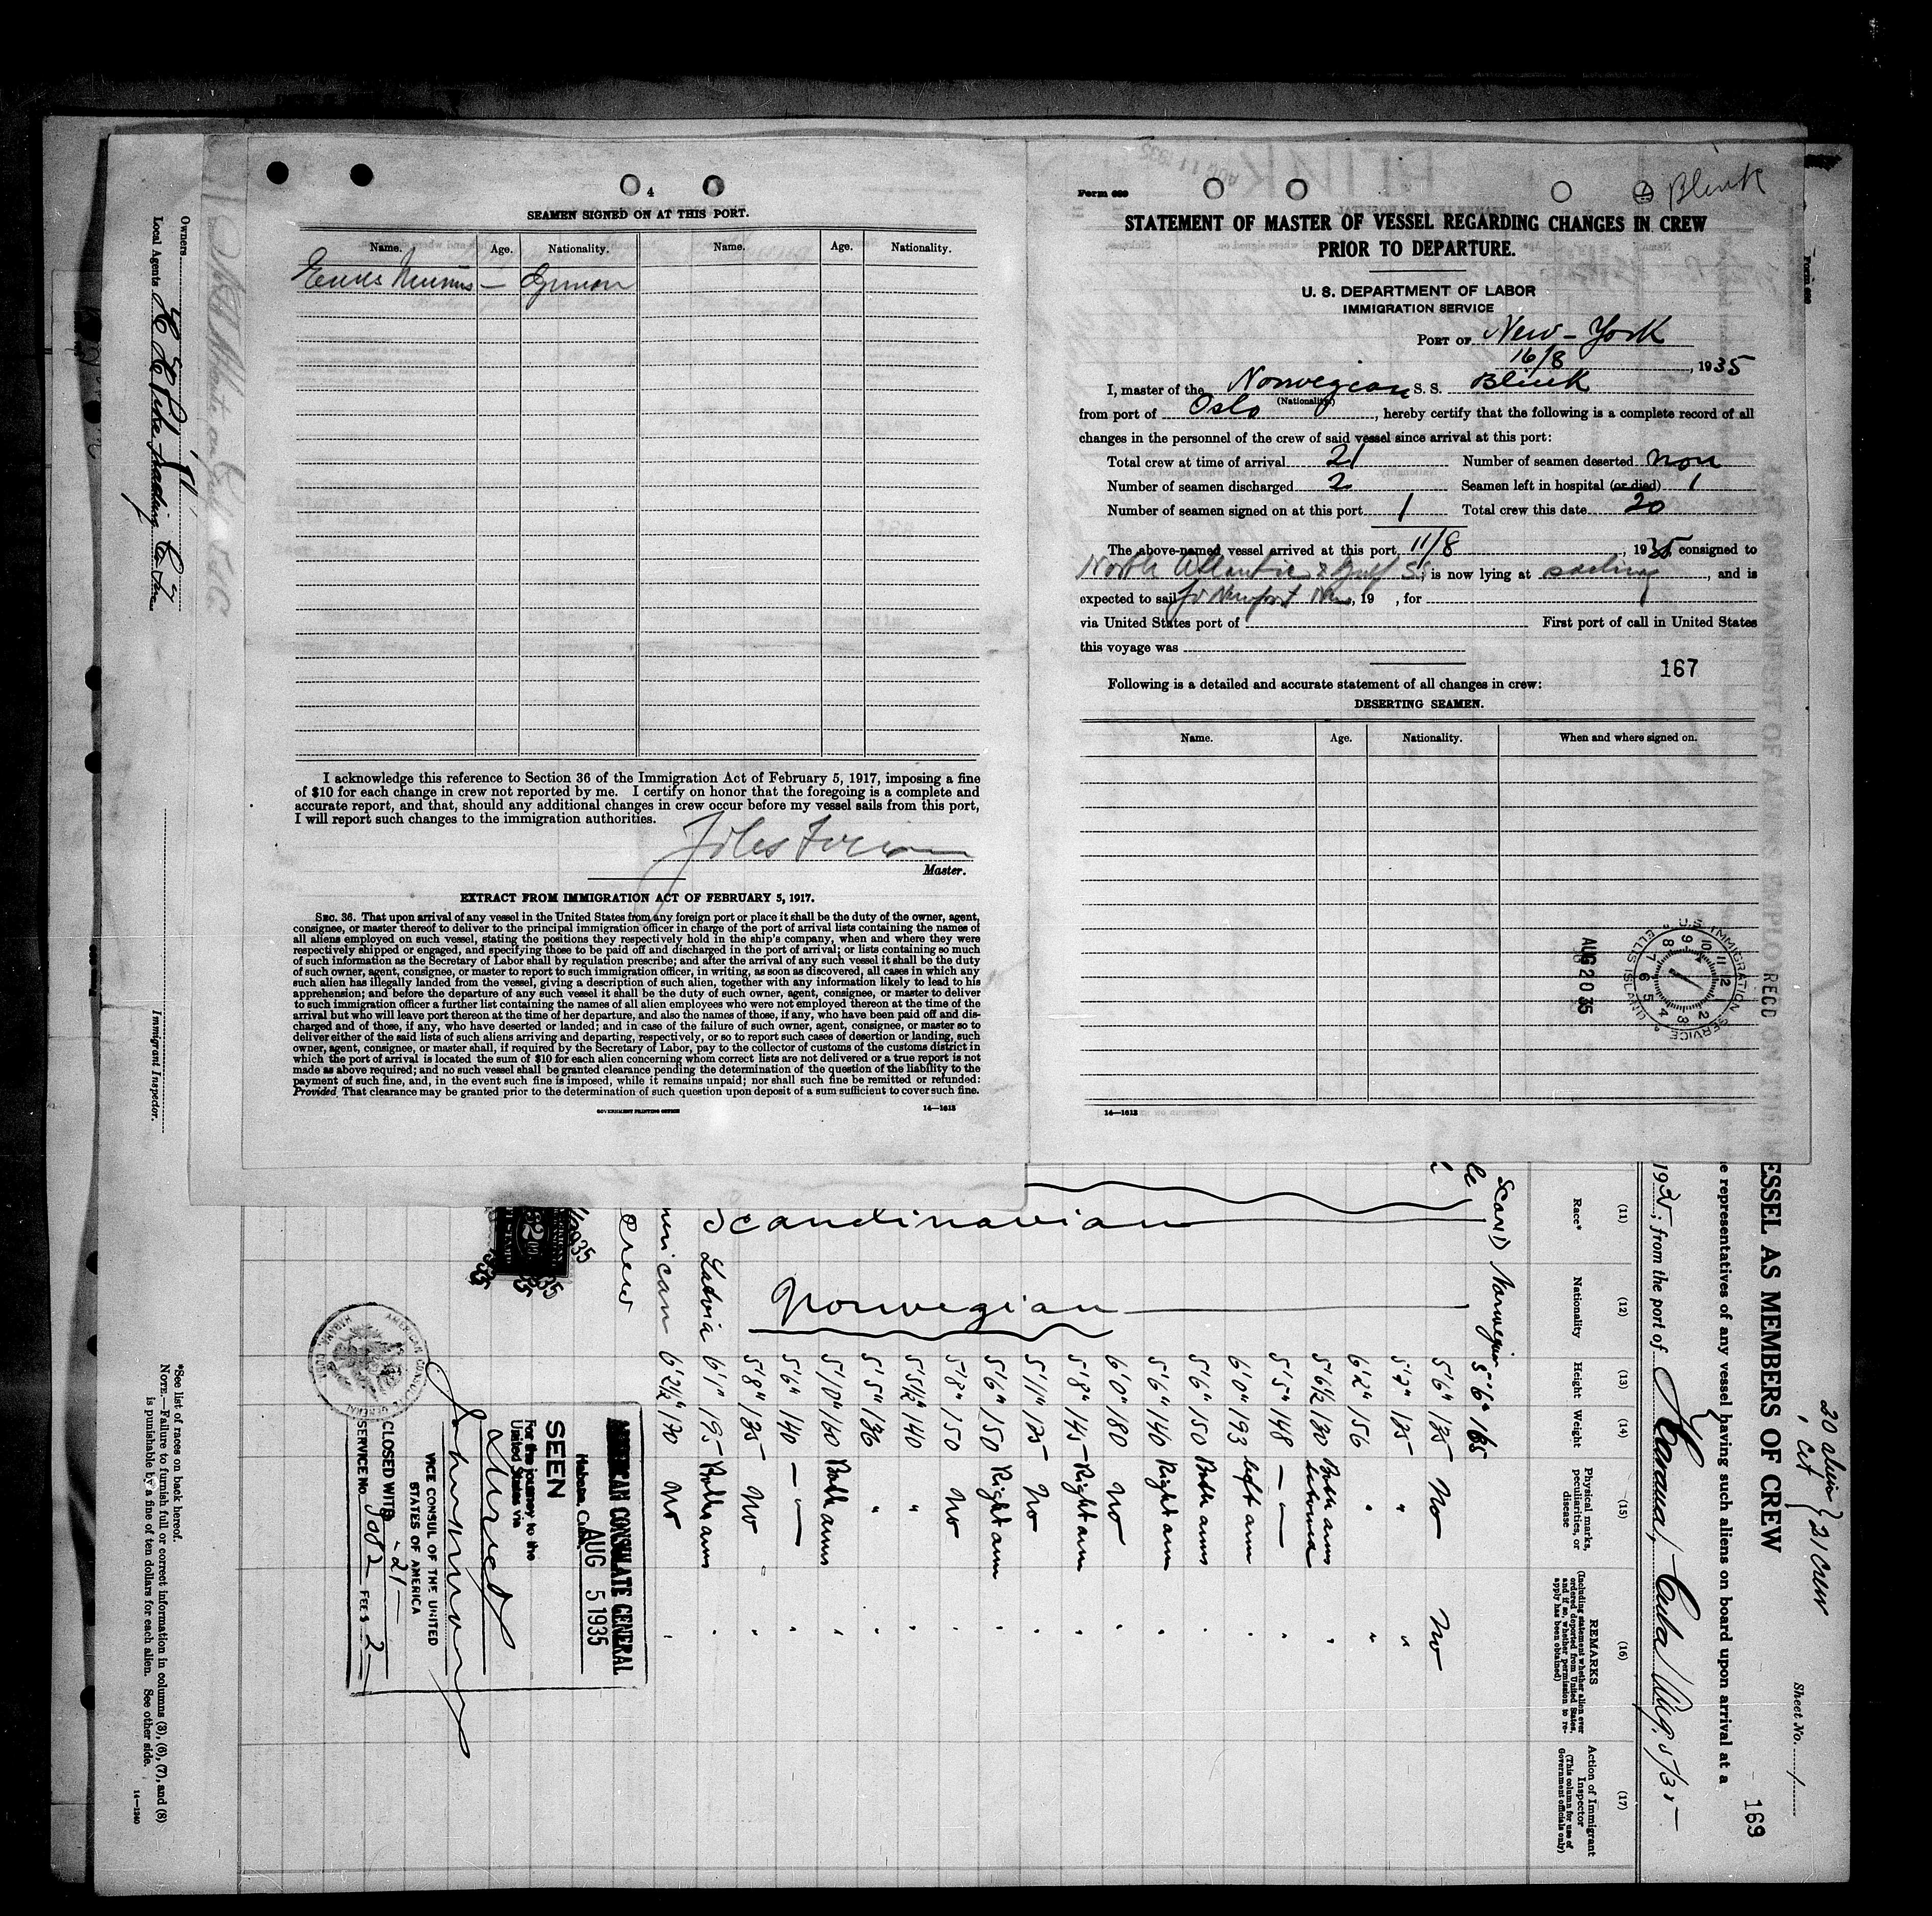 4
SEAMEN SIGNED ON AT THIS PORT.
Name. Age. Nationality. Name. Age. Nationality.
I acknowledge this reference to Section 36 of the Immigration Act of February 5, 1917, imposing a fine
of $10 for each change in crew not reported by me. I certify on honor that the foregoing is a complete and
accurate report, and that, should any additional changes in crew occur before my vessel sails from this port,
I will report such changes to the immigration authorities.
Master.
EXTRACT FROM IMMIGRATION ACT OF FEBRUARY 5, 1917.
SEC. 36. That upon arrival of any vessel in the United States from any foreign port or place it shall be the duty of the owner, agent,
consignee, or master thereof to deliver to the principal immigration officer in charge of the port of arrival lists containing the names of
all aliens employed on such vessel, stating the positions they respectively hold in the ship's company, when and where they were
respectively shipped or engaged, and specifying those to be paid off and discharged in the port of arrival; or lists containing so much
of such information as the Secretary of Labor shall by regulation prescribe; and after the arrival of any such vessel it shall be the duty
of such owner, agent, consignee, or master to report to such immigration officer, in writing, as soon as discovered, all cases in which any
such alien has illegally landed from the vessel, giving a description of such alien, together with any information likely to lead to his
apprehension; and before the departure of any such vessel it shall be the duty of such owner, agent, consignee, or master to deliver
to such immigration officer a further list containing the names of all alien employees who were not employed thereon at the time of the
arrival but who will leave port thereon at the time of her departure, and also the names of those, if any, who have been paid off and dis-
charged and of those, if any, who have deserted or landed; and in case of the failure of such owner, agent, consignee, or master so to
deliver either of the said lists of such aliens arriving and departing, respectively, or so to report such cases of desertion or landing, such
owner, agent, consignee, or master shall, if required by the Secretary of Labor, pay to the collector of customs of the customs district in
which the port of arrival is located the sum of $10 for each alien concerning whom correct lists are not delivered or a true report is not
made as above required; and no such vessel shall be granted clearance pending the determination of the question of the liability to the
payment of such fine, and, in the event such fine is imposed, while it remains unpaid; nor shall such fine be remitted or refunded:
Provided That clearance may be granted prior to the determination of such question upon deposit of a sum sufficient to cover such fine.
GOVERNMENT PRINTING OFFICE 14—1613
Form 689
Blink
STATEMENT OF MASTER OF VESSEL REGARDING CHANGES IN CREW
PRIOR TO DEPARTURE.
U. S. DEPARTMENT OF LABOR
IMMIGRATION SERVICE
PORT OF New-York
16/8, 1935
I, master of the Norwegian S. S. Blink
(Nationality)
from port of Oslo, hereby certify that the following is a complete record of all
changes in the personnel of the crew of said vessel since arrival at this port:
Total crew at time of arrival 21 Number of seamen deserted non
Number of seamen discharged 2 Seamen left in hospital (or died) 1
Number of seamen signed on at this port 1 Total crew this date 20
The above-named vessel arrived at this port 11/8, 1935, consigned to
North Atlantic & Gulf S; is now lying at, and is
expected to sail, 19 , for
via United States port of First port of call in United States
this voyage was
167
Following is a detailed and accurate statement of all changes in crew:
DESERTING SEAMEN.
Name. Age. Nationality. When and where signed on.
U.S. IMMIGRATION SERVICE ELLIS ISLAND
AUG 20 35
RECD
14—1613
Owners
Local Agents
Immigrant Inspector.
20 alien
1 cit
21 crew
Sheet No. 1
169
ESSEL AS MEMBERS OF CREW
e representatives of any vessel having such aliens on board upon arrival at a
1935; from the port of Havana, Cuba Aug. 5/35
(11) (12) (13) (14) (15) (16) (17)
Race* Nationality Height Weight
Physical marks, peculiarities, or disease
REMARKS
(Including statement whether alien ever ordered deported from United States, and if so, whether permission to re-apply has been obtained)
Action of Immigrant Inspector
(This column for use of Government officials only)
Scand Norwegian 5'6" 165
Scandinavian
Norwegian
5'6" 135 No No
5'7" 135 "
6'2" 156 "
5'6½ 130 Both arms tatooed
5'5" 148 —
6'0" 193 left arm
5'6" 150 Both arms
5'6" 140 Right arm
6'0" 180 No
5'8" 145 Right arm
5'11" 175 No
5'6" 150 Right arm
5'8" 150 No
5'5½ 140 "
5'5" 136 "
5'10" 160 Both arms
5'6" 140 —
5'8" 135 No
Latvia 6'1" 195 Both arms
merican 6'2½ 170 No
crew
AMERICAN CONSULATE GENERAL
Habana, Cuba AUG 5 1935
SEEN
For the journey to the
United States via
Direct
VICE CONSUL OF THE UNITED
STATES OF AMERICA
CLOSED WITH - 21 -
SERVICE No. FEE $ 2
*See list of races on back hereof.
NOTE.—Failure to furnish full or correct information in columns (3), (6), (7), and (8)
is punishable by a fine of ten dollars for each alien. See other side.
14—1240